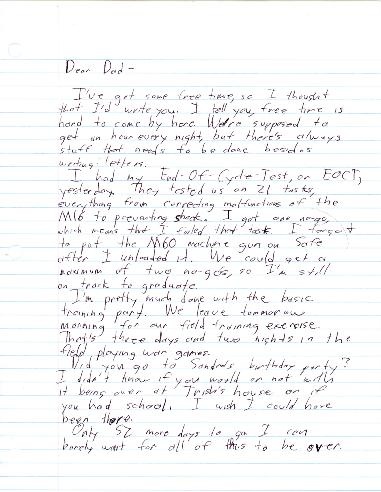 Dear Dad-
I've got some free time, so I thought
that I'd write you. I tell you, free time is
hard to come by here. We're supposed to
get an hour every night, but there's always
stuff that needs to be done besides
writing letters.
I had my End-Of-Cycle-Test, or EOCT,
yesterday. They tested us on 21 tasks,
everything from correcting malfunctions of the
M16 to preventing shock. I got one nogo,
which means that I failed that task. I forgot
to put the M60 machine gun on Safe
after I unloaded it. We could get a
maximum of two no-gos, so I'm still
on track to graduate.
I'm pretty much done with the basic
training part. We leave tommorow
morning for our field training exercise.
That's three days and two nights in the
field, playing war games.
Did you go to Sandra's birthday party?
I didn't know if you would or not with
it being over at Trish's house or if
you had school. I wish I could have
been there.
Only 52 more days to go. I can
barely wait for all of this to be over.